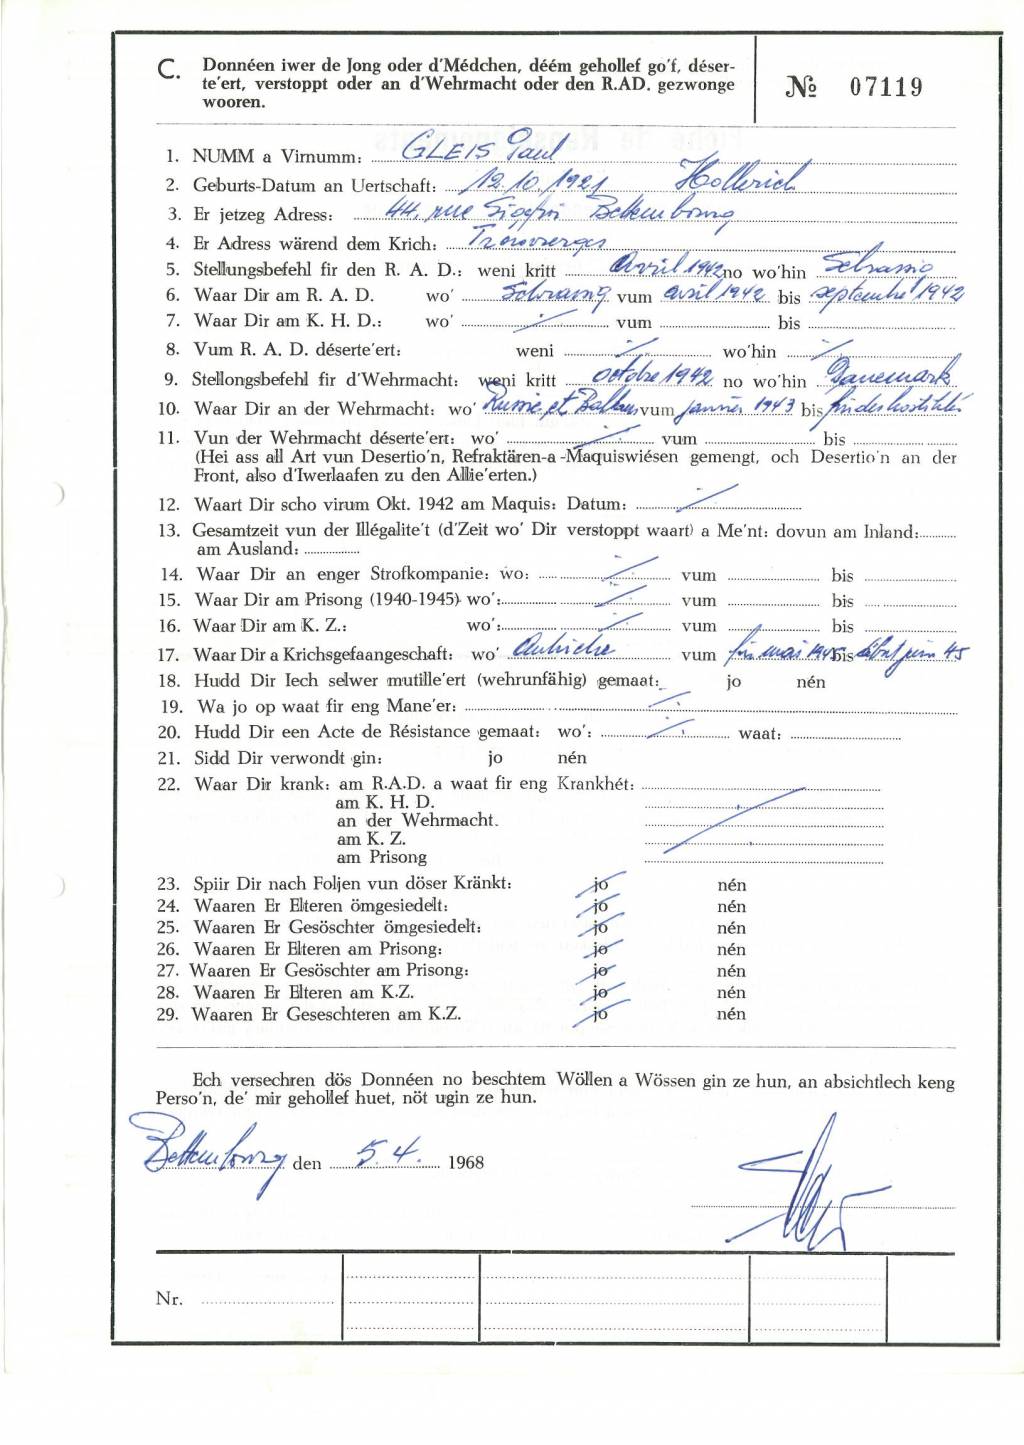 C. Donnéen iwer de Jong oder d'Médchen, déém gehollef go'f, déser-
te'ert, verstoppt oder an d'Wehrmacht oder den R.AD. gezwonge
wooren.
№ 07119
1. NUMM a Virnumm: GLEIS Paul
2. Geburts-Datum an Uertschaft: 12.10.1921 Hollerich
3. Er jetzeg Adress: 44, rue Sigefroi Bettembourg
4. Er Adress wärend dem Krich:
5. Stellungsbefehl fir den R. A. D.: weni kritt Avril 1942 no wo'hin Schrassig
6. Waar Dir am R. A. D. wo' Schrassig vum avril 1942 bis septembre 1942
7. Waar Dir am K. H. D.: wo' vum bis
8. Vum R. A. D. déserte'ert: weni wo'hin
9. Stellongsbefehl fir d'Wehrmacht: weni kritt octobre 1942 no wo'hin Danemark
10. Waar Dir an der Wehrmacht: wo' Russie et Balkans vum janvier 1943 bis fin des hostilités
11. Vun der Wehrmacht déserte'ert: wo' vum bis
(Hei ass all Art vun Desertio'n, Refraktären-a-Maquiswiésen gemengt, och Desertio'n an der
Front, also d'Iwerlaafen zu den Allie'erten.)
12. Waart Dir scho virum Okt. 1942 am Maquis: Datum:
13. Gesamtzeit vun der Illégalite't (d'Zeit wo' Dir verstoppt waart) a Me'nt: dovun am Inland:
am Ausland:
14. Waar Dir an enger Strofkompanie: wo: vum bis
15. Waar Dir am Prisong (1940-1945) wo': vum bis
16. Waar Dir am K. Z.: wo': vum bis
17. Waar Dir a Krichsgefaangeschaft: wo' Autriche vum fin mai 1945 bis début juin 45
18. Hudd Dir Iech selwer mutille'ert (wehrunfähig) gemaat: jo nén
19. Wa jo op waat fir eng Mane'er:
20. Hudd Dir een Acte de Résistance gemaat: wo': waat:
21. Sidd Dir verwondt gin: jo nén
22. Waar Dir krank: am R.A.D. a waat fir eng Krankhét:
am K. H. D.
an der Wehrmacht.
am K. Z.
am Prisong
23. Spiir Dir nach Foljen vun döser Kränkt: jo nén
24. Waaren Er Elteren ömgesiedelt: jo nén
25. Waaren Er Gesöschter ömgesiedelt: jo nén
26. Waaren Er Elteren am Prisong: jo nén
27. Waaren Er Gesöschter am Prisong: jo nén
28. Waaren Er Elteren am K.Z. jo nén
29. Waaren Er Geseschteren am K.Z. jo nén
Ech versechren dös Donnéen no beschtem Wöllen a Wössen gin ze hun, an absichtlech keng
Perso'n, de' mir gehollef huet, nöt ugin ze hun.
Bettembourg den 5.4. 1968
Nr.